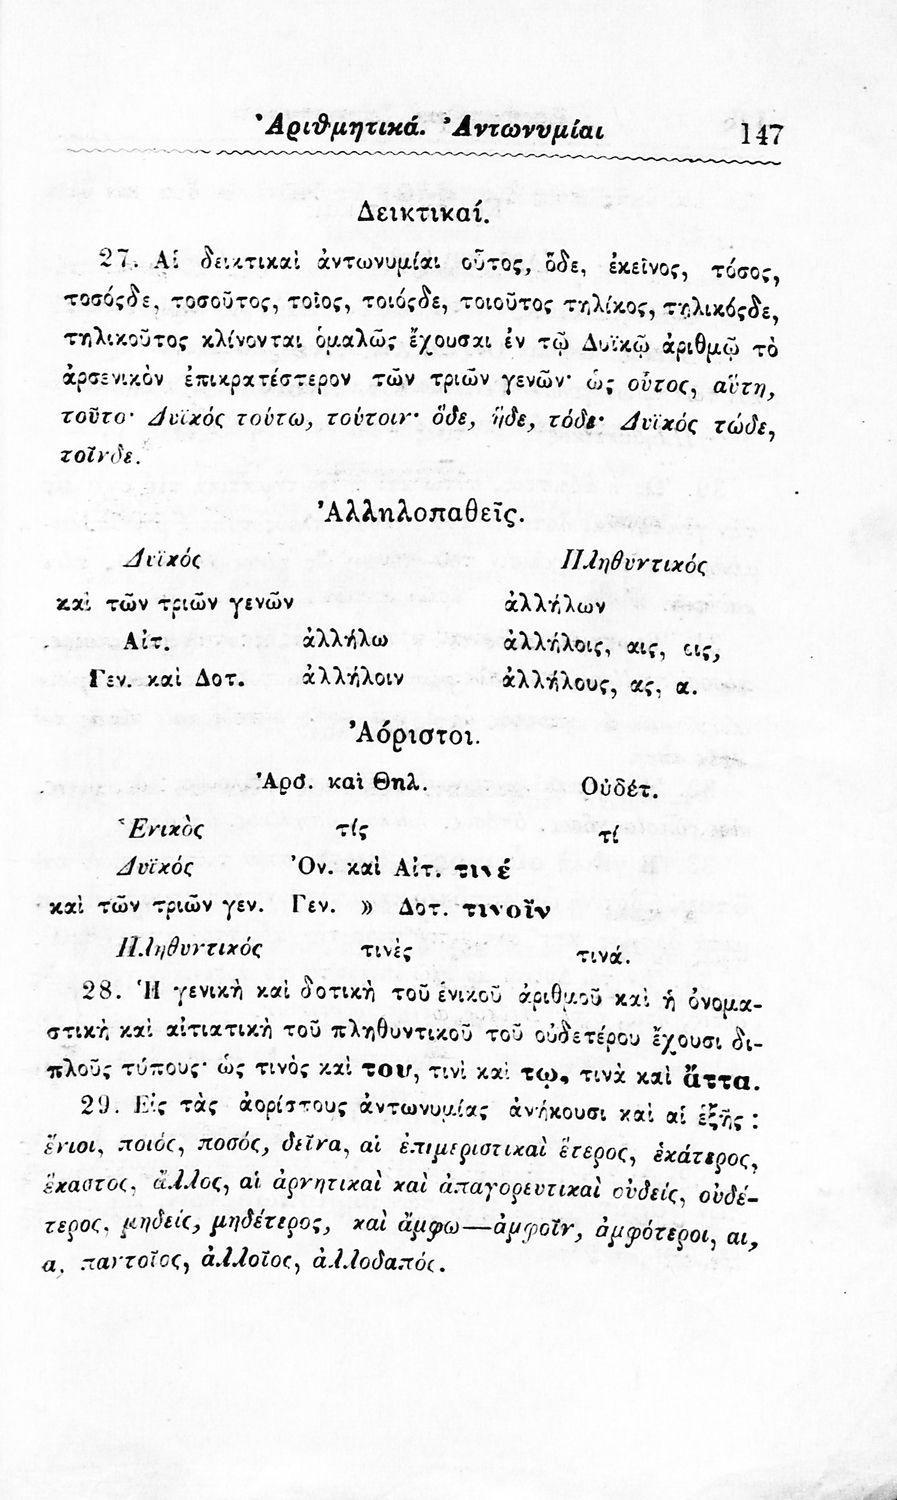 Ἀριθμητικά. Ἀντωνυμίαι 147
Δεικτικαί.
27. Αἱ δεικτικαὶ ἀντωνυμίαι οὗτος, ὅδε, ἐκεῖνος, τόσος,
τοσόςδε, τοσοῦτος, τοῖος, τοιόςδε, τοιοῦτος τηλίκος, τηλικόςδε,
τηλικοῦτος κλίνονται ὁμαλῶς ἔχουσαι ἐν τῷ Δυϊκῷ ἀριθμῷ τὸ
ἀρσενικὸν ἐπικρατέστερον τῶν τριῶν γενῶν· ὡς οὗτος, αὕτη,
τοῦτο· Δυϊκός τούτω, τούτοιν· ὅδε, ἥδε, τόδε· Δυϊκός τώδε,
τοῖνδε.
Ἀλληλοπαθεῖς.
Δυϊκός Πληθυντικός
καὶ τῶν τριῶν γενῶν ἀλλήλων
Αἰτ. ἀλλήλω ἀλλήλοις, αις, οις,
Γεν. καὶ Δοτ. ἀλλήλοιν ἀλλήλους, ας, α.
Ἀόριστοι.
Ἀρσ. καὶ Θηλ. Οὐδέτ.
Ἑνικὸς τίς τί
Δυϊκός Ὀν. καὶ Αἰτ. τινέ
καὶ τῶν τριῶν γεν. Γεν. » Δοτ. τινοῖν
Πληθυντικός τινὲς τινά.
28. Ἡ γενικὴ καὶ δοτικὴ τοῦ ἑνικοῦ ἀριθμοῦ καὶ ἡ ὀνομα-
στικὴ καὶ αἰτιατικὴ τοῦ πληθυντικοῦ τοῦ οὐδετέρου ἔχουσι δι-
πλοῦς τύπους· ὡς τινὸς καὶ του, τινὶ καὶ τῳ, τινὰ καὶ ἄττα.
29. Εἰς τὰς ἀορίστους ἀντωνυμίας ἀνήκουσι καὶ αἱ ἑξῆς :
ἔνιοι, ποιός, ποσός, δεῖνα, αἱ ἐπιμεριστικαὶ ἕτερος, ἑκάτερος,
ἕκαστος, ἄλλος, αἱ ἀρνητικαὶ καὶ ἀπαγορευτικαὶ οὐδείς, οὐδέ-
τερος, μηδείς, μηδέτερος, καὶ ἄμφω—ἀμφοῖν, ἀμφότεροι, αι,
α, παντοῖος, ἀλλοῖος, ἀλλοδαπός.